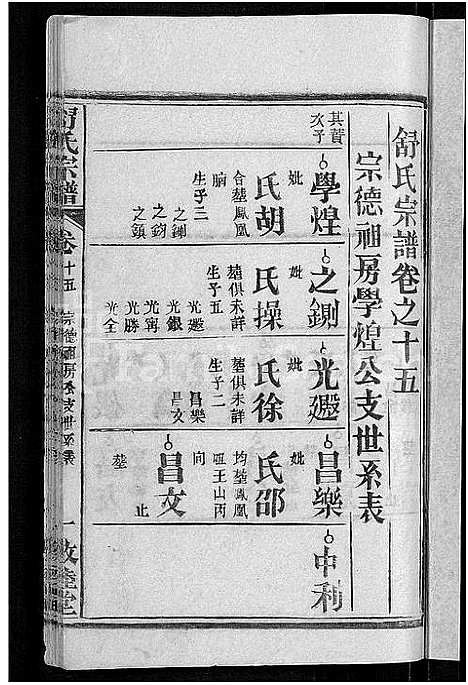 舒氏宗譜卷之十五
宗德祖房學煌公支世系表
其蕡次子
學煌
妣胡氏
合塟鳳凰腦
生子三
之鍘
之鈞
之鎮
之鍘
妣操氏
塟俱未詳
生子五
光遲
光銀
光寗
光勝
光全
光遲
妣徐氏
塟俱未詳
生子二
昌樂
昌文
昌樂
妣邵氏
均塟鳳凰咀壬山丙向
昌文
塟
止
中利
舒氏宗譜
卷十五
宗德祖房系支世系表
一
敦睦堂